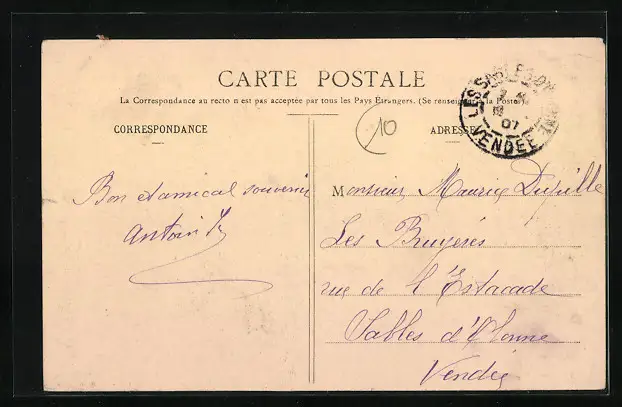 CARTE POSTALE
La Correspondance au recto n'est pas acceptée par tous les Pays Etrangers. (Se renseigner à la Poste)
CORRESPONDANCE
ADRESSE
10
LES SABLES D'OLONNE
07
VENDEE
Bon et amical souvenir
Antoin
Monsieur Maurice
Les Bruyères
rue de l'Estacade
Sables d'Olonne
Vendée